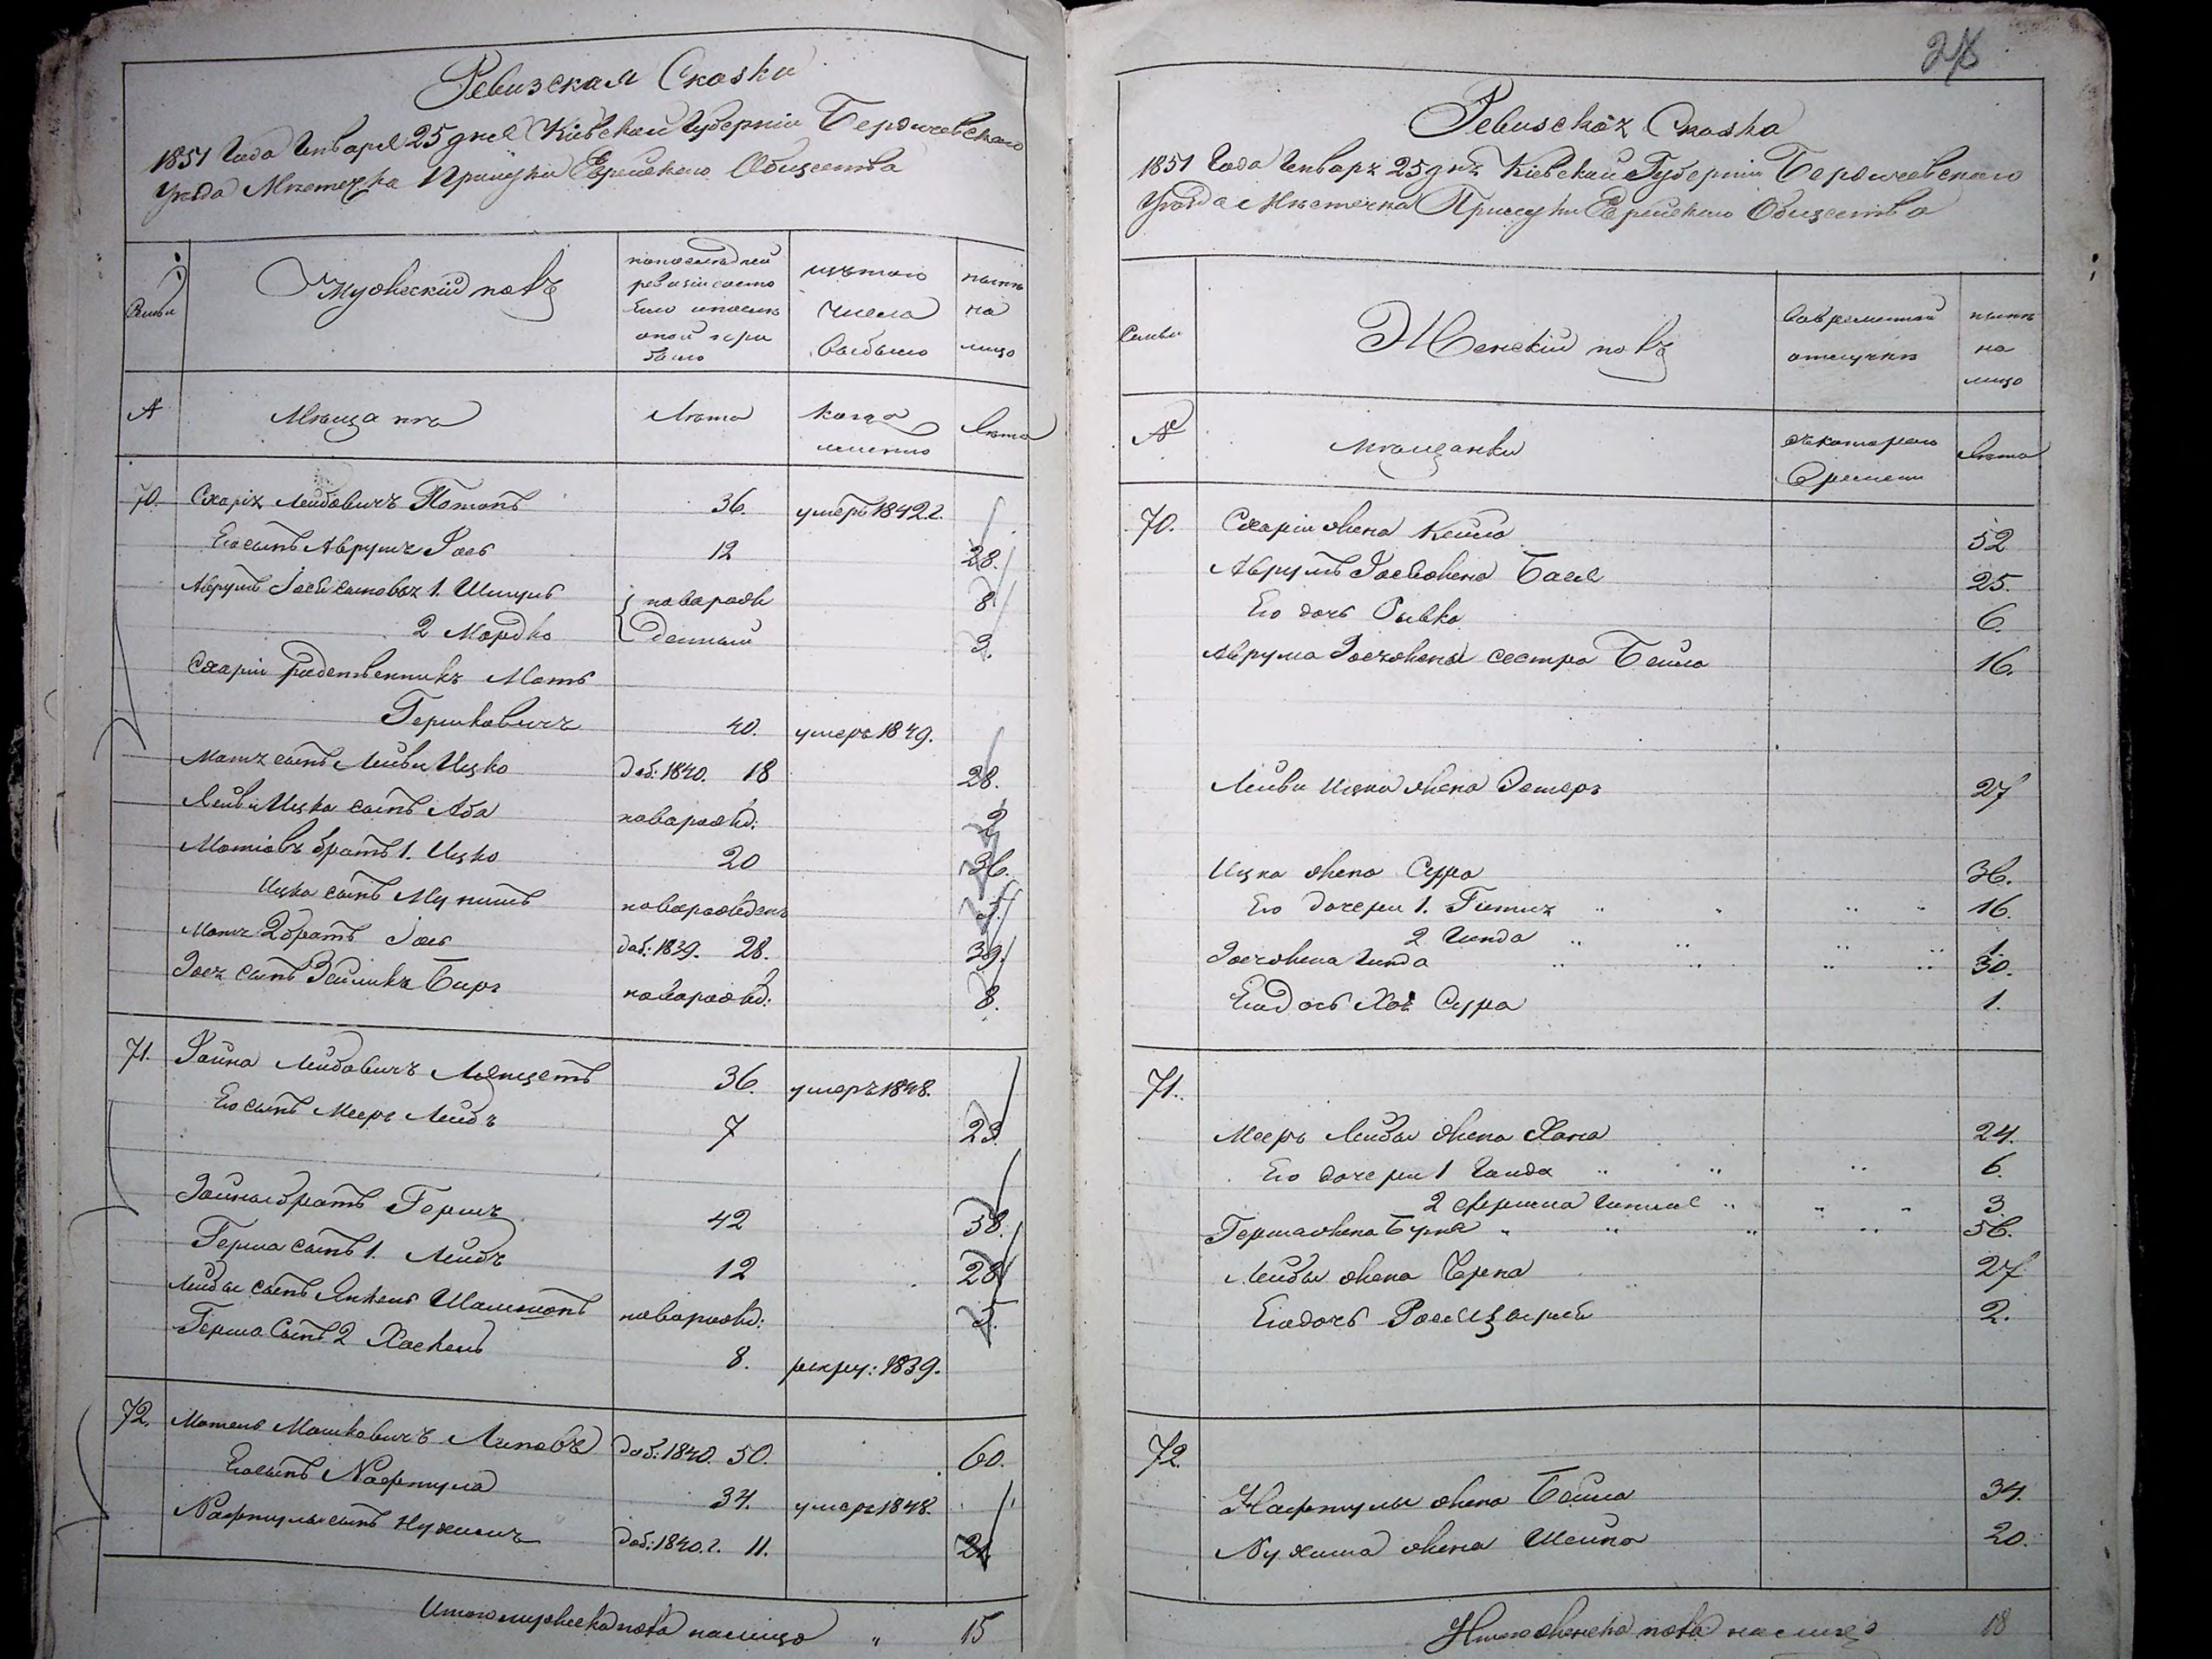 Ревизская Сказка
1851 Года Генваря 25 дня Кіевской Губерніи Бердичевскаго
Уѣзда Мѣстечка Прилуки Еврейскаго Общества
Семьи
Мужескій полъ
по последней
ревизіи состо
яло и после
оной при
было
изъ того
числа
выбыло
ныне
на
лицо
№
Мѣщане
Лѣта
Когда
именно
Лѣта
70. Схарія Лейбовичъ 36. умеръ 1842 г.
Его сынъ Аврумъ Іось 12 28.
Аврумъ Іося сыновья 1. Шмуль новорож 8
2 Мордко денный 3.
Схаріи родственникъ Мотъ
Гершковичъ 40. умеръ 1849.
Мотя сынъ Лейви Ицко доб: 1840. 18 28.
Лейви Ицка сынъ Аба новорожд: 2
Мотіовъ братъ 1. Ицко 20 36.
Ицка сынъ новорожден
Мотя 2 братъ Іось доб: 1839. 28. 39.
Іося сынъ Зейликъ Беръ новорожд: 8.
71. Лейбовичъ 36. умеръ 1848.
Его сынъ Мееръ Лейбъ 7 23.
братъ Гершъ 42 58.
Герша сынъ 1. Лейбъ 12 28
Лейбы сынъ Янкель новорожд: 5.
Герша Сынъ 2 Хаскель 8. рекру: 1839.
72. Мотель Мошковичъ Липовъ доб: 1840. 50. 60.
Его сынъ Нафтула 34. умеръ 1848.
Нафтулы сынъ Нухимъ доб: 1840. г. 11. 21
Итого мужеска пола на лицо " 15
28
Ревизская Сказка
1851 Года Генваря 25 дня Кіевской Губерніи Бердичевскаго
Уѣзда Мѣстечка Прилуки Еврейскаго Общества
Семьи
Женскій полъ
Во временной
отлучке
ныне
на
лицо
№
Мѣщанки
съ котораго
Времени
Лѣта
70. Схаріи жена Кейла 52
Аврумъ Іося жена Бася 25.
Его дочь Рывка 6.
Аврума Іося жены сестра Бейла 16.
Лейви Ицка жена Эстеръ 27
Ицка жена Сура 36.
Его дочери 1. 16.
2 Гинда 1.
Іося жена Гинда 30.
Его дочь Хая Сура 1.
71.
Мееръ Лейбы жена Хана 24.
Его дочери 1 6.
2 Фейга 3.
Герша жена 56.
Лейбы жена Черна 27
Его дочь 2.
72
Нафтулы жена Бейла 34.
Нухима жена Шейна 20.
Итого женска пола на лицо 18